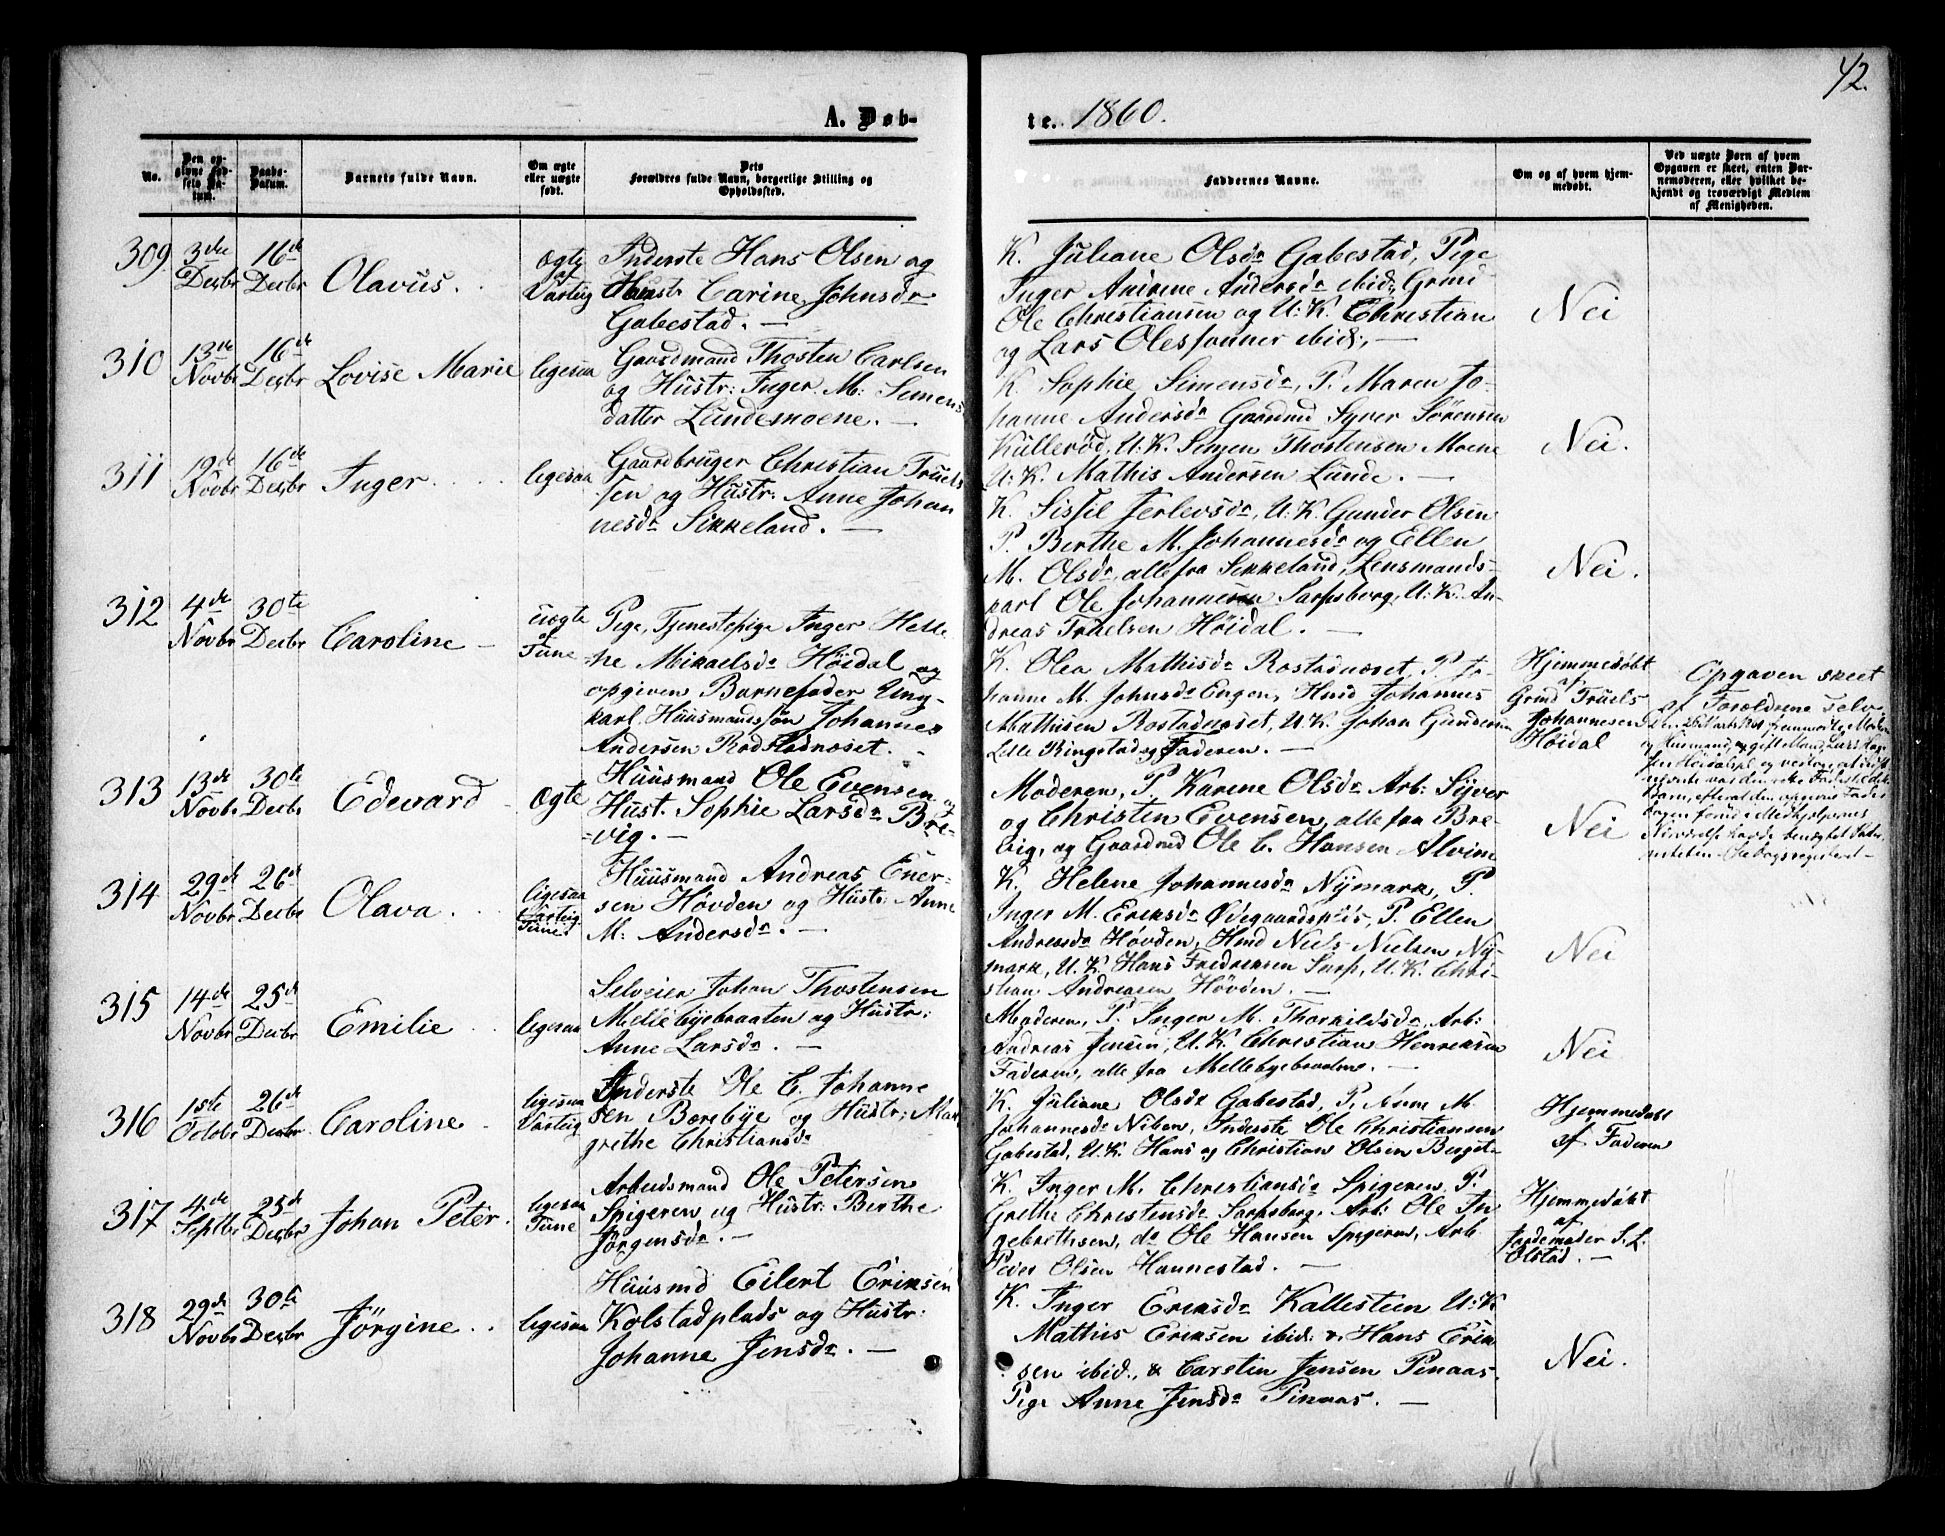 42.
A. Døb-
te. 1860.
No.
Den op-
givne Fød-
sels Da-
tum.
Daabs-
Datum.
Barnets fulde Navn.
Om ægte
eller uægte
født.
Dets
Forældres fulde Navn, borgerlige Stilling og
Opholdssted.
Faddernes Navne.
Om og af hvem hjem-
medøbt.
Ved uægte Børn af hvem
Opgaven er skeet, enten Bar-
nemoderen, eller hvilket be-
kjendt og troværdigt Medlem
af Menigheden.
309
3die
Decbr
16de
Decbr
Olavus.
Ægte
af
Varteig
Inderste Hans Olsen og
Hustr Carine Johnsdr
Gabestad. —
K. Juliane Olsdr Gabestad, Pige
Inger Andrine Andersdr ibid, Grmd
Ole Christiansen og U.K. Christian
og Lars Olessønner ibid, —
Nei
310
13de
Novbr
16de
Decbr
Lovise Marie
ligesaa
Gaardmand Thosten Carlsen
og Hustr: Inger M: Simens
datter Lundemoene. —
K. Sophie Simensdr, P. Maren Jo-
hanne Andersdr Gaardmd Syver Sörensen
Kullerød, U.K. Simen Thostensen Moene
U.K. Mathis Andersen Lunde. —
Nei.
311
19de
Novbr
16de
Decbr
Inger
ligesaa
Gaardbruger Christian Truels
sen og Hustr: Anne Johan
nesdr Sikkeland. —
K. Sissil Jerlevsdr, U.K. Gunder Olsen
P. Berthe M. Johannesdr og Ellen
M. Olsdr, alle fra Sikkeland, Lensmands-
karl Ole Johannesen Sarpsborg, U.K. An-
dreas Truelsen Höidal. —
Nei.
312
4de
Novbr
30te
Decbr
Caroline —
uægte
af
Tune
Pige, Tjenestepige Inger Helle
ne Mikaelsdr Höidal og
opgiven Barnefader Ung-
karl, Huusmandssøn Johannes
Andersen Rostadnæset.
K. Olea Mathisdr Rostadnæset, P. Jo-
hanne M. Johnsdr Engen, Husd Johannes
Mathisen Rostadnæset, U.K. Johan Gundersen
Lille Ringstad og Faderen. —
Hjemmedøbt
af
Grmd Truels
Johannesen
Höidal
Opgaven skeet
af Forældrene selv
313
13de
Novbr
30te
Decbr
Edevard
Ægte
Huusmand Ole Evensen og
Hust. Sophie Larsdr Bre-
vig. —
Moderen, P. Karene Olsdr Arb: Syver
og Christen Evensen, alle fra Bre-
vig, og Gaardmd Ole C. Hansen Alvim
Nei
314
29de
Novbr
26de
Decbr
Olava.
ligesaa
Varteig
Tune
Huusmand Andreas Ener-
sen Hövden og Hustr: Anne
M: Andersdr. —
K. Helene Johannesdr Nymark, P.
Inger M. Eriksdr Ødegaardsplds, P. Ellen
Andreasdr Hövden, Hmd Niels Nielsen Ny-
mark, U.K. Hans Fredriksen Sarp, U.K. Chri-
stian Andreasen Hövden. —
Nei
315
14de
Novbr
25de
Decbr
Emilie
ligesaa
Selveier Johan Thostensen
Mellebyebraaten og Hustr:
Anne Larsdr. —
Moderen, P. Inger M. Thorkildsdr, Arb:
Andreas Jensen, U.K. Christian Henriksen
Faderen, alle fra Mellebyebraatene. —
Nei
316
1ste
Octobr
26de
Decbr
Caroline
ligesaa
Varteig
Inderste Ole C. Johanne
sen Borebye og Hustr: Mar
grethe Christiansdr
K. Juliane Olsdr Gabestad, P. Anne M.
Johannesdr Nilsen, Inderste Ole Christiansen
Gabestad, U.K. Hans og Christian Olsen
Hjemmedøbt
af Faderen
317
4de
Septbr
25de
Decbr
Johan Peter.
ligesaa
Tune
Arbeidsmand Ole Petersen
Spigeren og Hustr: Berthe
Jørgensdr. —
K. Inger M. Christiansdr Spigeren, P.
Grethe Christensdr Sarpsborg, Arb: Ole In
gebrethsen, do Ole Hansen Spigeren, Arb
Peder Olsen Hannestad. —
Hjemmedøbt
af
Jordemoder S. L.
Olstad. —
318
29de
Novbr
30te
Decbr
Jörgine.
ligesaa
Huusmd Eilert Eriksen
Kolstadplads og Hustr:
Johanne Jensdr. —
K. Inger Eriksdr Kallesteen U.K
Mathis Eriksen ibid: & Hans Erik
sen ibid., & Carsten Jensen Pinaas.
Pige Anne Jensdr Pinaas. —
Nei.